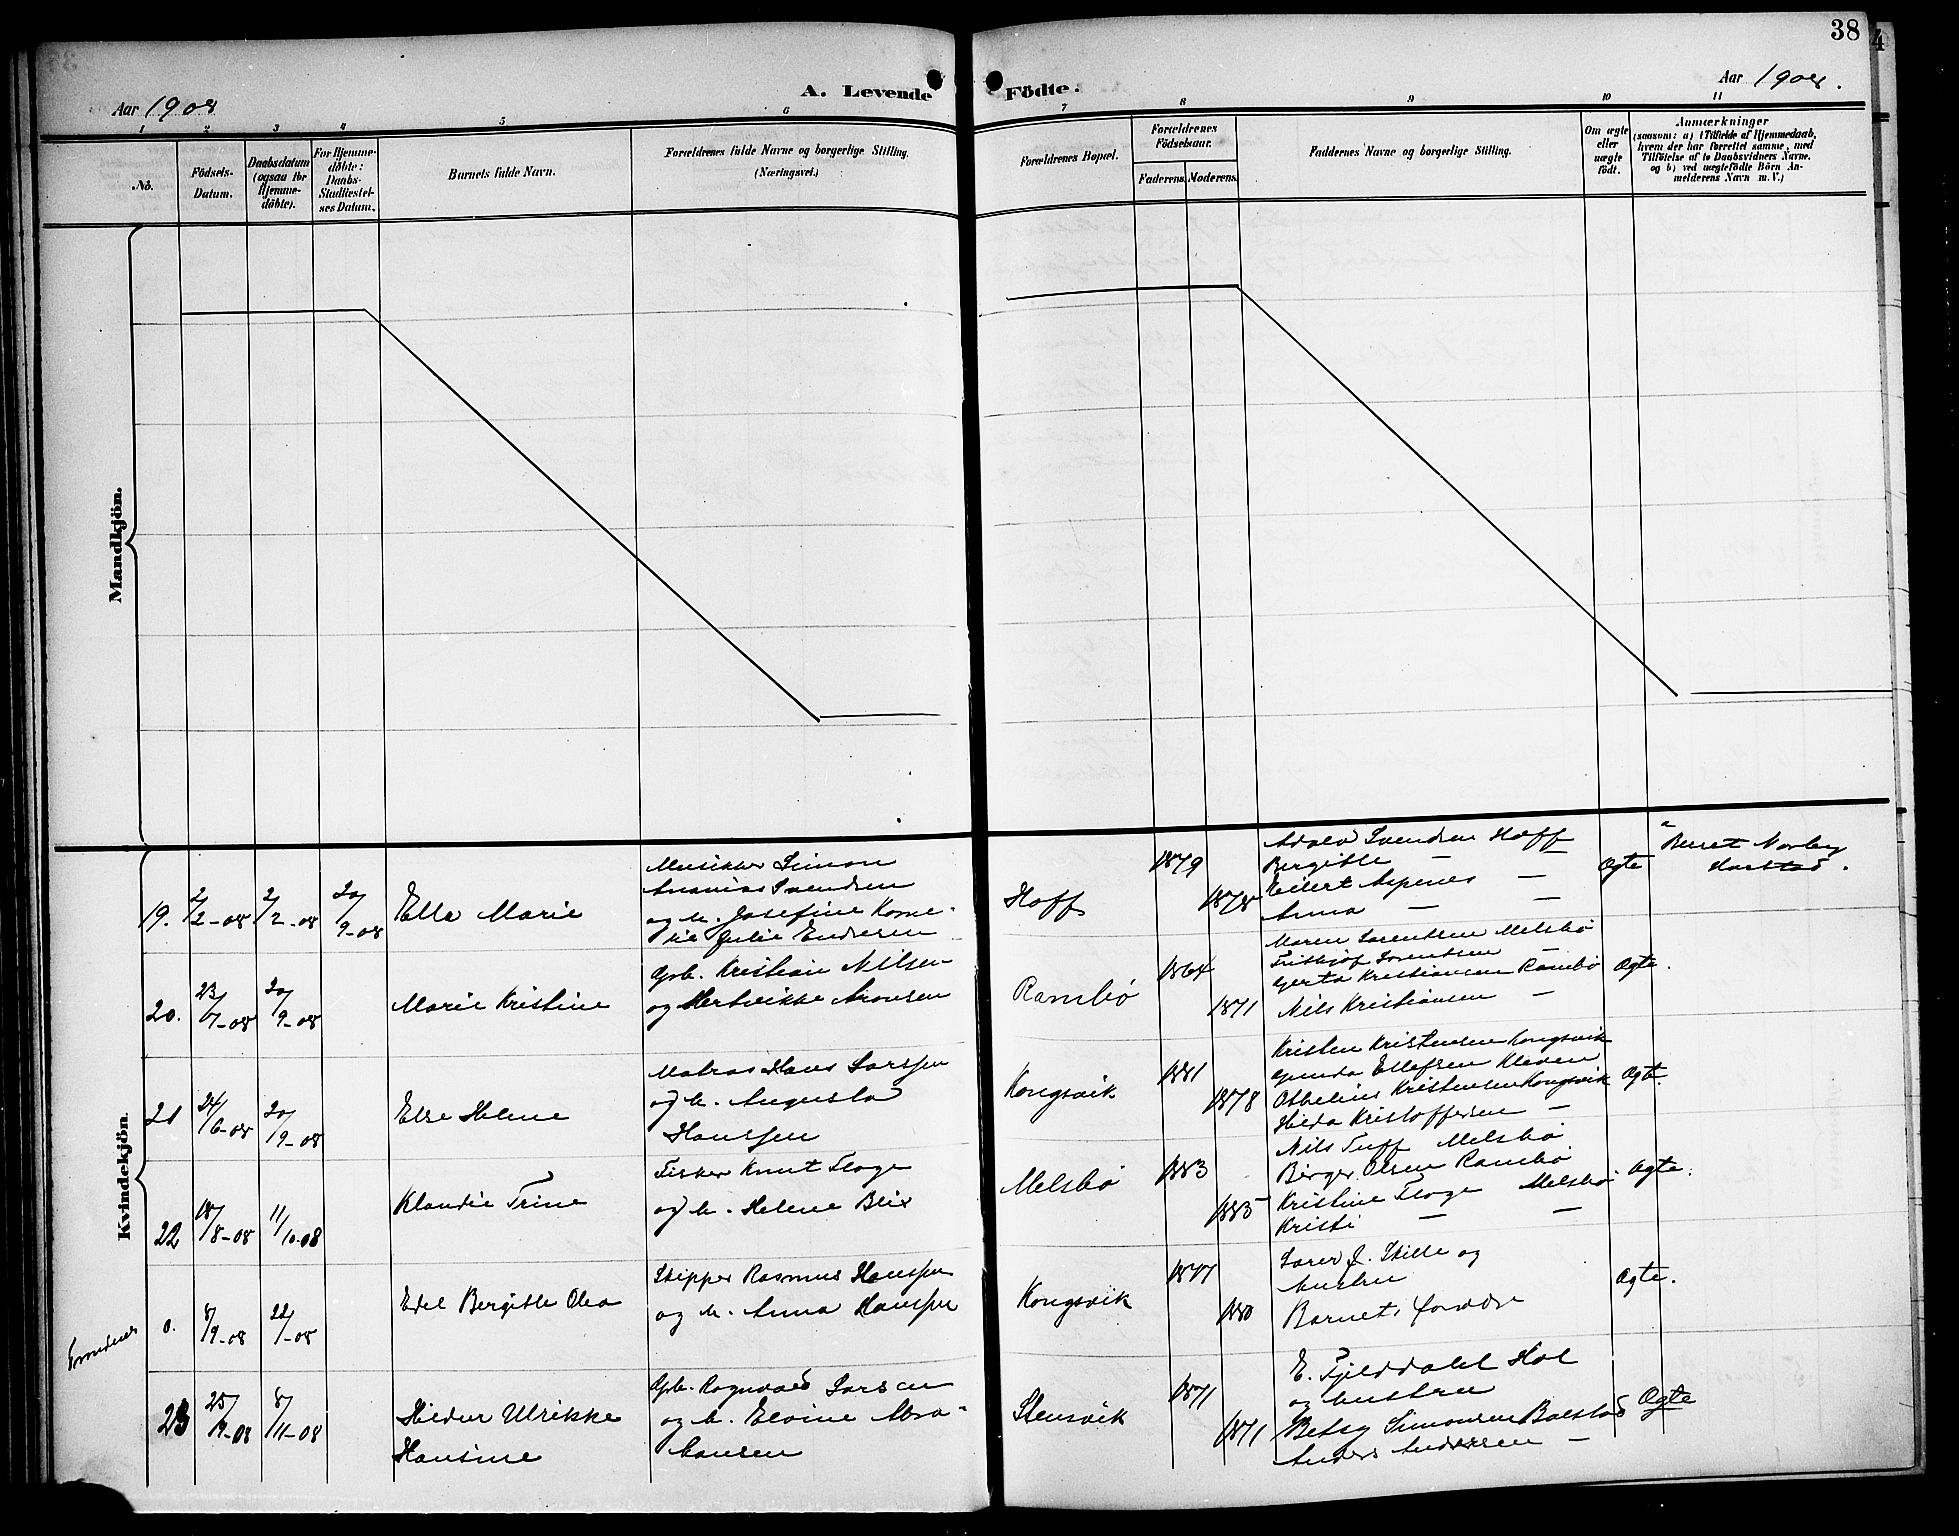 38
4
Aar 1908
A. Levende Födte.
Aar 1908.
1 2 3 4 5 6 7 8 9 10 11
No.
Födsels-
Datum.
Daabsdatum
(ogsaa for
Hjemme-
döbte).
For Hjemme-
döbte:
Daabs-
Stadfæstel-
ses Datum.
Barnets fulde Navn.
Forældrenes fulde Navne og borgerlige Stilling.
(Næringsvei.)
Forældrenes Bopæl.
Forældrenes
Födselsaar.
Faderens. Moderens.
Faddernes Navne og borgerlige Stilling.
Om ægte
eller
uægte
födt.
Anmærkninger
(saasom: a) i Tilfælde af Hjemmedaab,
hvem der har forrettet samme, med
Tilföielse af to Daabsvidners Navne,
og b) ved uægtefödte Börn An-
melderens Navn m. V.)
Mandkjön.
Kvindekjön.
19. 2/2-08 2/2-08 20/9-08
Ella Marie
Musiker Simon
Ananias Svendsen
og h. Josefine Korne-
lie Julie Endresen
Hoff
1879
1878
Adolv Svendsen Hoff
Bergitte — —
Eilert Aspenes —
Anna — —
Ægte
Berret Norby
Harstad.
20. 23/7-08 20/9-08
Marie Kristine
Gpb. Kristian Nilsen
og Hertvikke Aronsen
Rambø
1864
1871
Maren Sørentsen Melsbø
Frithjof Sørentsen —
Gerta Kristiansen Rambø
Nils Kristiansen —
Ægte.
21 24/6-08 20/9-08
Else Helene
Matros Hans Larssen
og h. Augusta
Hanssen
Kongsvik
1881
1878
Kristen Kristensen Kongsvik
Gunda Ellefsen Kleven
Othelius Kristensen Kongsvik
Hilda Kristoffersen —
Ægte.
22 18/8-08 11/10-08
Klaudie Trine
Fisker Knut Floge
og h. Helene Blix
Melsbø
1883
1885
Nils Tuff Melsbø
Birger Olsen Rambø
Kristine Floge Melsbø
Kristi — —
Ægte.
0. 8/9-08
Edel Bergitte Olea
Skipper Rasmus Hanssen
og h. Anna Hanssen
Kongsvik
1877
1880
og
hustru
Barnets forældre
Ægte.
23 25/9-08 8/11-08
Hildur Ulrikke
Hansine
Gpb. Ragnvald Larsen
og h. Elvine Abra-
hamsen
Stensvik
1871
1871
E. Fjelddalel Hol
og hustru
Betsy Simonsen Bolstad
Anders Andersen —
Ægte